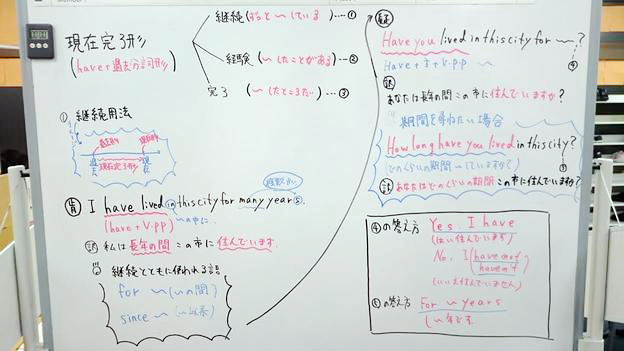 現在完了形
(have+過去分詞形)
継続(ずっと〜している)…①
経験(〜したことがある)…②
完了(〜したところだ…)…③
① 継続用法
過去
現在
現在完了形
肯 I have lived in this city for many years.
(have + V.pp)
訳 私は長年の間この市に住んでいます.
継続とともに使われる語
for 〜(〜の間)
since 〜(〜以来)
Have you lived in this city for 〜?
Have + S + V.pp 〜
④
訳
あなたは長年の間この市に住んでいますか?
期間を尋ねたい場合
How long have you lived in this city?
(どのくらいの期間〜していますか?)
⑤
訳 あなたはどのくらいの期間この市に住んでいますか?
④の答え方 Yes, I have
(はい住んでいます)
No, I have not
haven't
(いいえ住んでいません)
⑤の答え方 For 〜 years
(〜年です